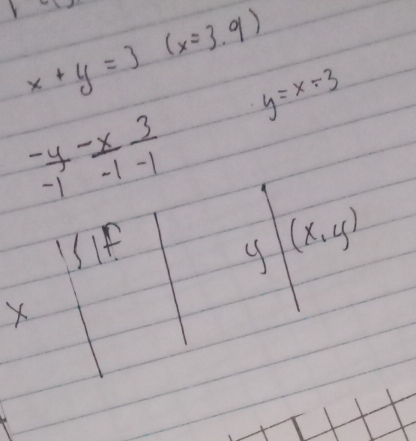 x + y = 3 (x = 3.9)
y = x - 3
-y/-1 -x/-1 3/-1
x y (x, y)